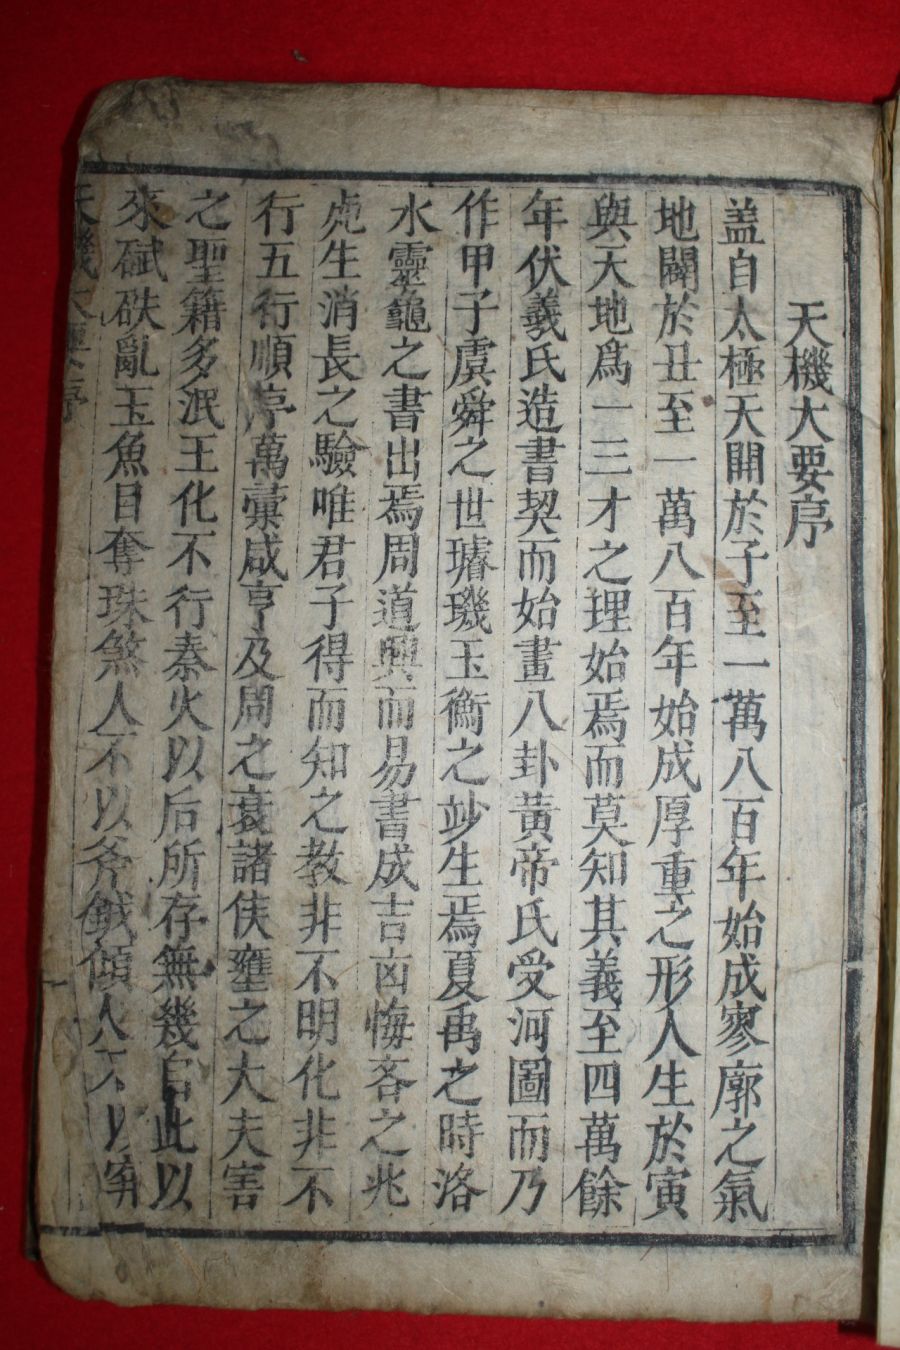 天機大要序
盖自太極天開於子至一萬八百年始成寥廓之氣
地闢於丑至一萬八百年始成厚重之形人生於寅
與天地爲一三才之理始焉而莫知其義至四萬餘
年伏羲氏造書契而始畫八卦黃帝氏受河圖而乃
作甲子虞舜之世璿璣玉衡之竗生焉夏禹之時洛
水靈龜之書出焉周道興而易書成吉凶悔吝之兆
虎生消長之驗唯君子得而知之教非不明化非不
行五行順序萬彙咸亨及周之衰諸侯壅之大夫害
之聖籍多泯王化不行秦火以后所存無幾自此以
來碔砆亂玉魚目奪珠煞人不以斧鉞傾人不以穽
天機大要序